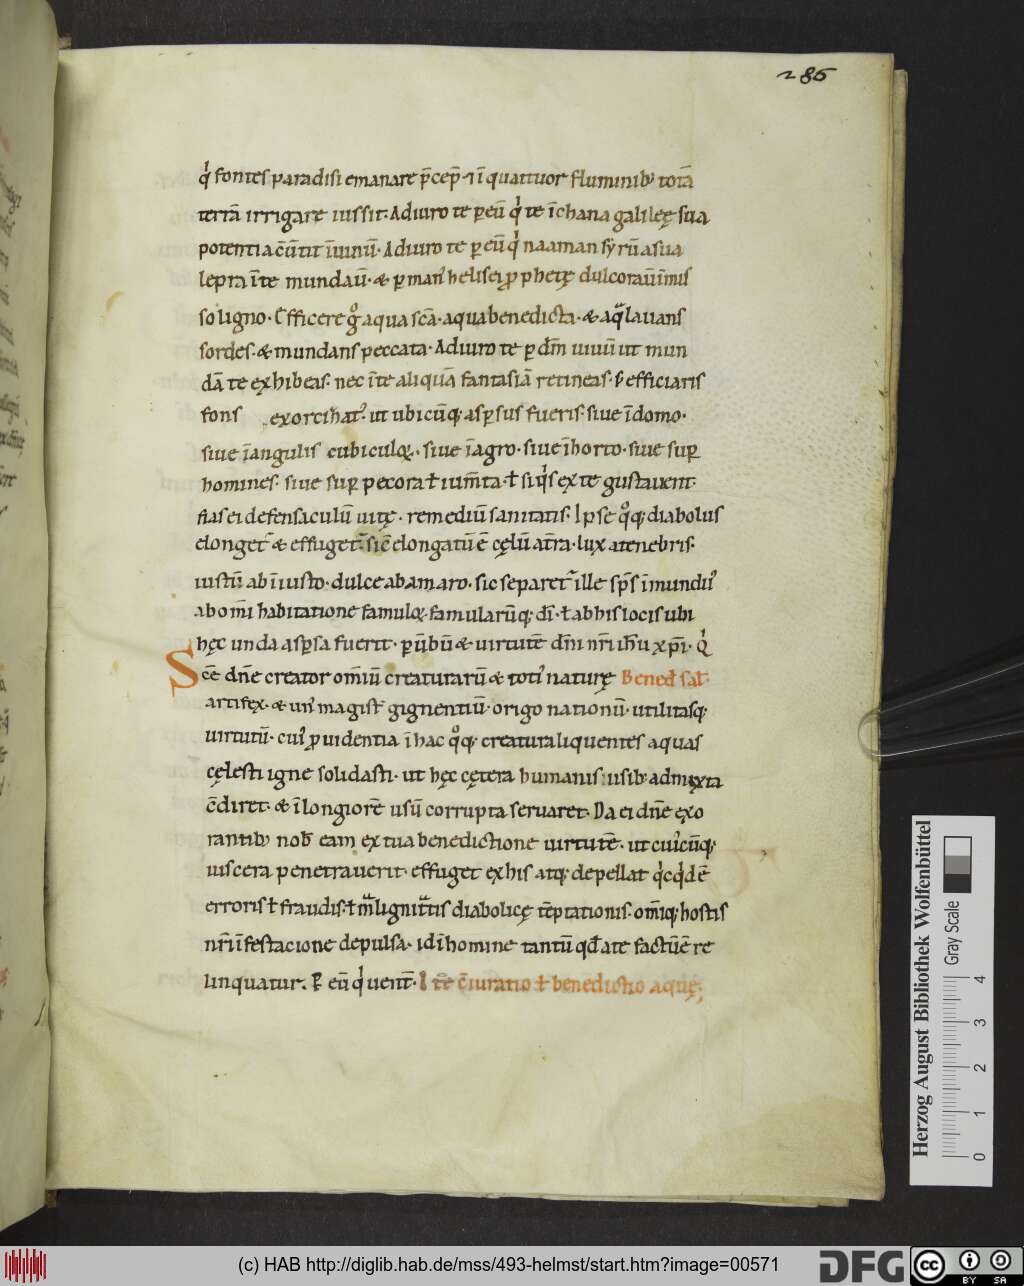 286
q̇ fontes paradisi emanare p̄cep̄ ⁊ ī quattuor fluminib; totā
terrā irrigare iussit. Adiuro te ꝑ eū q̇ te ī chana galileę sua
potentia c̄ūtit ī uinū. Adiuro te ꝑ eū q̇ naaman syrū a sua
lepra ī te mundau̅. & ꝑ man᾽ helisei ꝓphetę dulcorau̅ ī mis
so ligno. Efficere g̊ aqua sc̄a. aqua benedicta. & aq̄ lauans
sordes. & mundans peccata. Adiuro te ꝑ dm̄ uiuū ut mun
dā te exhibeas. nec ī te aliquā fantasiā retineas. s; efficiaris
fons exorcizat᾽. ut ubicūq; asꝑsus fueris. siue ī domo.
siue ī angulis cubiculoꝝ. siue ī agro. siue ī horto. siue suꝑ
homines. siue suꝑ pecora ł ium̄ta. ł si q̇s ex te gustauerit.
fias ei defensaculū uitę. remediū sanitatis. Ipse q̊q; diabolus
elonget᷑ & effuget᷑. sic̄ elongatū ē cęlū a t̄ra. lux a tenebris.
iustū ab īiusto. dulce ab amaro. sic separet᷑ ille sp̄s īmund᾽
ab om̄i habitatione famuloꝝ. famularūq; dī. ł ab his locis ubi
hęc unda asꝑsa fuerit. ꝑ ūbū & uirtutē dm̄ nr̄i ih̄u xp̄i. Q̇
Sc̄e dn̄e creator om̄iū creaturarū & toti᾽ naturę Bened̄ sal̄.
artifex. & un᾽ magist᷑ gignentiū. origo nationū. utilitasq;
uirtutū. cui᾽ ꝓuidentia ī hac q̊q; creatura liquentes aquas
cęlesti igne solidasti. ut hęc cętera humanis usib; admixta
c̄diret. & ī longiorē usū corrupta seruaret. Da ei dn̄e exo
rantib; nob̄ eam ex tua benedictione uirtutē. ut cui᾽cūq;
uiscera penetrauerit. effuget ex his atq; depellat q̇cq̇d ē
erroris ł fraudis. ł malignitatis diabolicę tēptationis. om̄iq; hostis
nr̄i īfestacione depulsa. id ī homine tantū qđ a te factū ē re
linquatur. Ꝑ eū q̇ uent̄. Itē c̄iuratio ł benedictio aquę;
Herzog August Bibliothek Wolfenbüttel
Gray Scale
0 1 2 3 4
(c) HAB http://diglib.hab.de/mss/493-helmst/start.htm?image=00571
DFG
cc BY SA